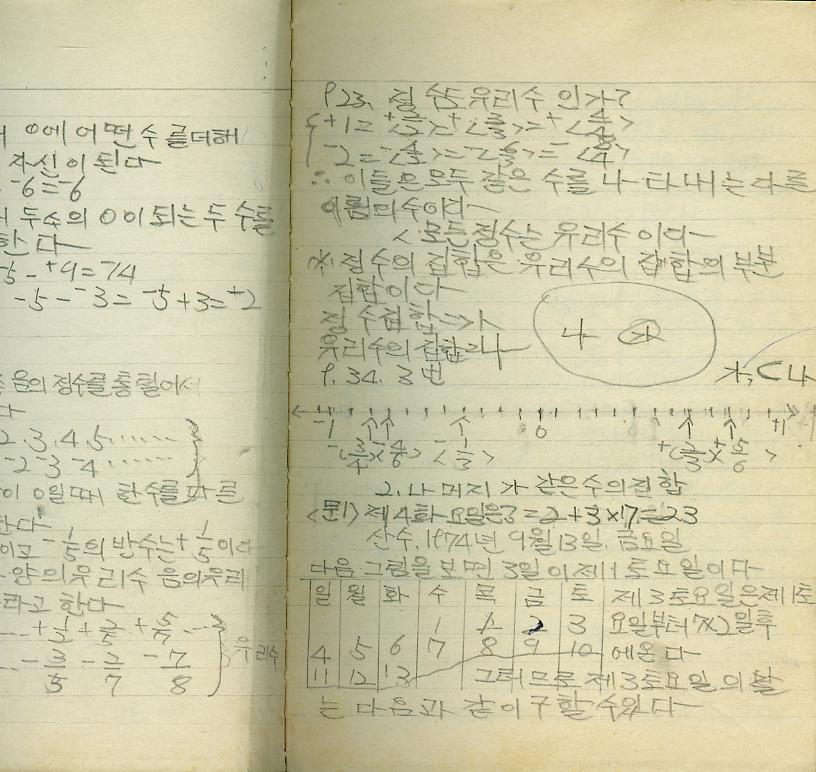 0에 어떤수를더해
자신이 된다
-6=-6
두수의 0이 되는 두 수를
한다
-5-+9=74
-5--3=-5+3=+2
음의 정수를 통틀어서
다
2.3.4.5......
-2-3-4......
이 0일때 한수를 다른
한다
이고 -1/5의 반수는 +1/5이다
양의유리수 음의유리
라고 한다
...+1/2+2/5+5/7...
유리수
...-3/5 -2/7 -7/8
P.23. 정수도 유리수 인가?
+1=+<2/2>=+<3/3>=+<4/4>
-2=-<4/2>=-<6/3>=-<8/4>
∴ 이들은 모두 같은 수를 나타내는 다른
이름의 수이다
<모든정수는 유리수이다
※ 정수의 집합은 유리수의 집합의 부분
집합이다
정수집합⇒가
유리수의 집합⇒나
나 가
가⊂나
P.34. 3번
-1 0 +1
-<3/4>×-<4/6> -<1/3> +<2/3>×+<5/6>
2. 나머지가 같은수의 집합
<문1> 제4화요일은? =2+3×7=23
산수. 1974년 9월13일. 금요일
다음 그림을 보면 3일이 제1토요일이다
일 월 화 수 목 금 토 제3토요일은 제1토
1 2 3 요일부터 7×2일후
4 5 6 7 8 9 10 에온다
11 12 13 그러므로 제3토요일의 날
는 다음과 같이 구할수있다